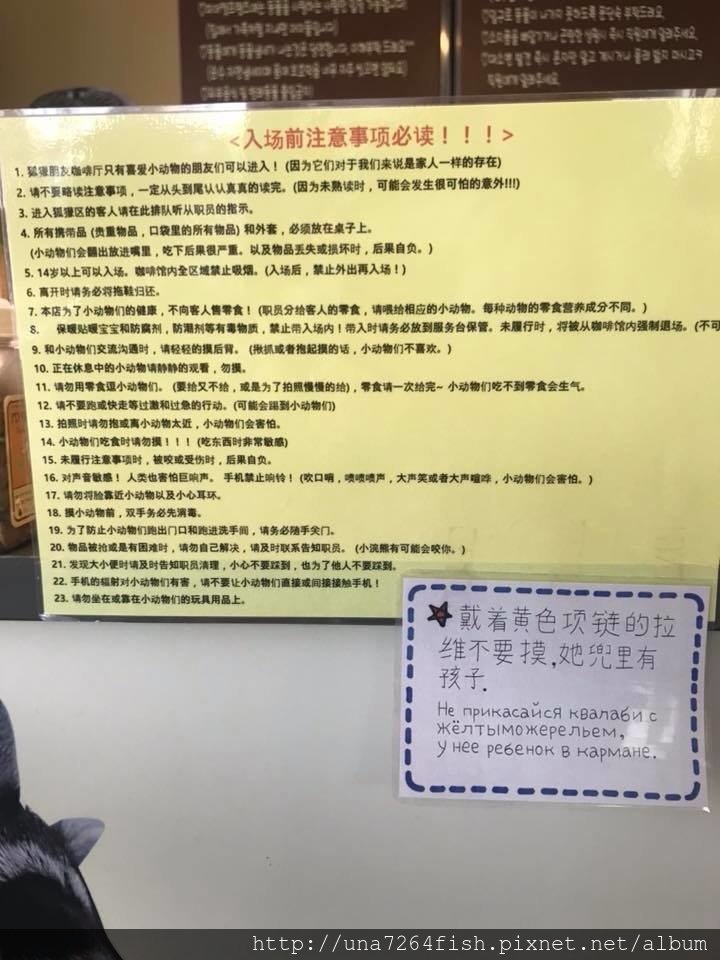 <入场前注意事项必读！！！>
1. 狐獴朋友咖啡厅只有喜爱小动物的朋友们可以进入！ (因为它们对于我们来说是家人一样的存在)
2. 请不要略读注意事项，一定从头到尾认认真真的读完。(因为未熟读时，可能会发生很可怕的意外!!!)
3. 进入狐獴区的客人请在此排队听从职员的指示。
4. 所有携带品 (贵重物品，口袋里的所有物品) 和外套，必须放在桌子上。
(小动物们会翻出放进嘴里，吃下后果很严重。以及物品丢失或损坏时，后果自负。)
5. 14岁以上可以入场。咖啡馆内全区域禁止吸烟。(入场后，禁止外出再入场！)
6. 离开时请务必将拖鞋归还。
7. 本店为了小动物们的健康，不向客人售零食！ (职员分给客人的零食，请喂给相应的小动物。每种动物的零食营养成分不同。)
8. 保暖贴暖宝宝和防腐剂，防潮剂等有毒物质，禁止带入场内！带入时请务必放到服务台保管。未履行时，将被从咖啡馆内强制退场。(不可
9. 和小动物们交流沟通时，请轻轻的摸后背。 (揪抓或者抱起摸的话，小动物们不喜欢。)
10. 正在休息中的小动物请静静的观看，勿摸。
11. 请勿用零食逗小动物们。 (要给又不给，或是为了拍照慢慢的给)，零食请一次给完~ 小动物们吃不到零食会生气。
12. 请不要跑或快走等过激和过急的行动。(可能会踢到小动物们)
13. 拍照时请勿抱或离小动物太近，小动物们会害怕。
14. 小动物们吃食时请勿摸！！！ (吃东西时非常敏感)
15. 未履行注意事项时，被咬或受伤时，后果自负。
16. 对声音敏感！ 人类也害怕巨响声。 手机禁止响铃！ (吹口哨，啧啧啧声，大声笑或者大声喧哗，小动物们会害怕。)
17. 请勿将脸靠近小动物以及小心耳环。
18. 摸小动物前，双手务必先消毒。
19. 为了防止小动物们跑出门口和跑进洗手间，请务必随手关门。
20. 物品被抢或是有困难时，请勿自己解决，请及时联系告知职员。 (小浣熊有可能会咬你。)
21. 发现大小便时请及时告知职员清理，小心不要踩到，也为了他人不要踩到。
22. 手机的辐射对小动物们有害，请不要让小动物们直接或间接接触手机！
23. 请勿坐在或靠在小动物们的玩具用品上。
戴着黄色项链的拉
维不要摸,她兜里有
孩子.
Не прикасайся квалаби с
жёлтыможерельем,
у нее ребенок в кармане.
http://una7264fish.pixnet.net/album